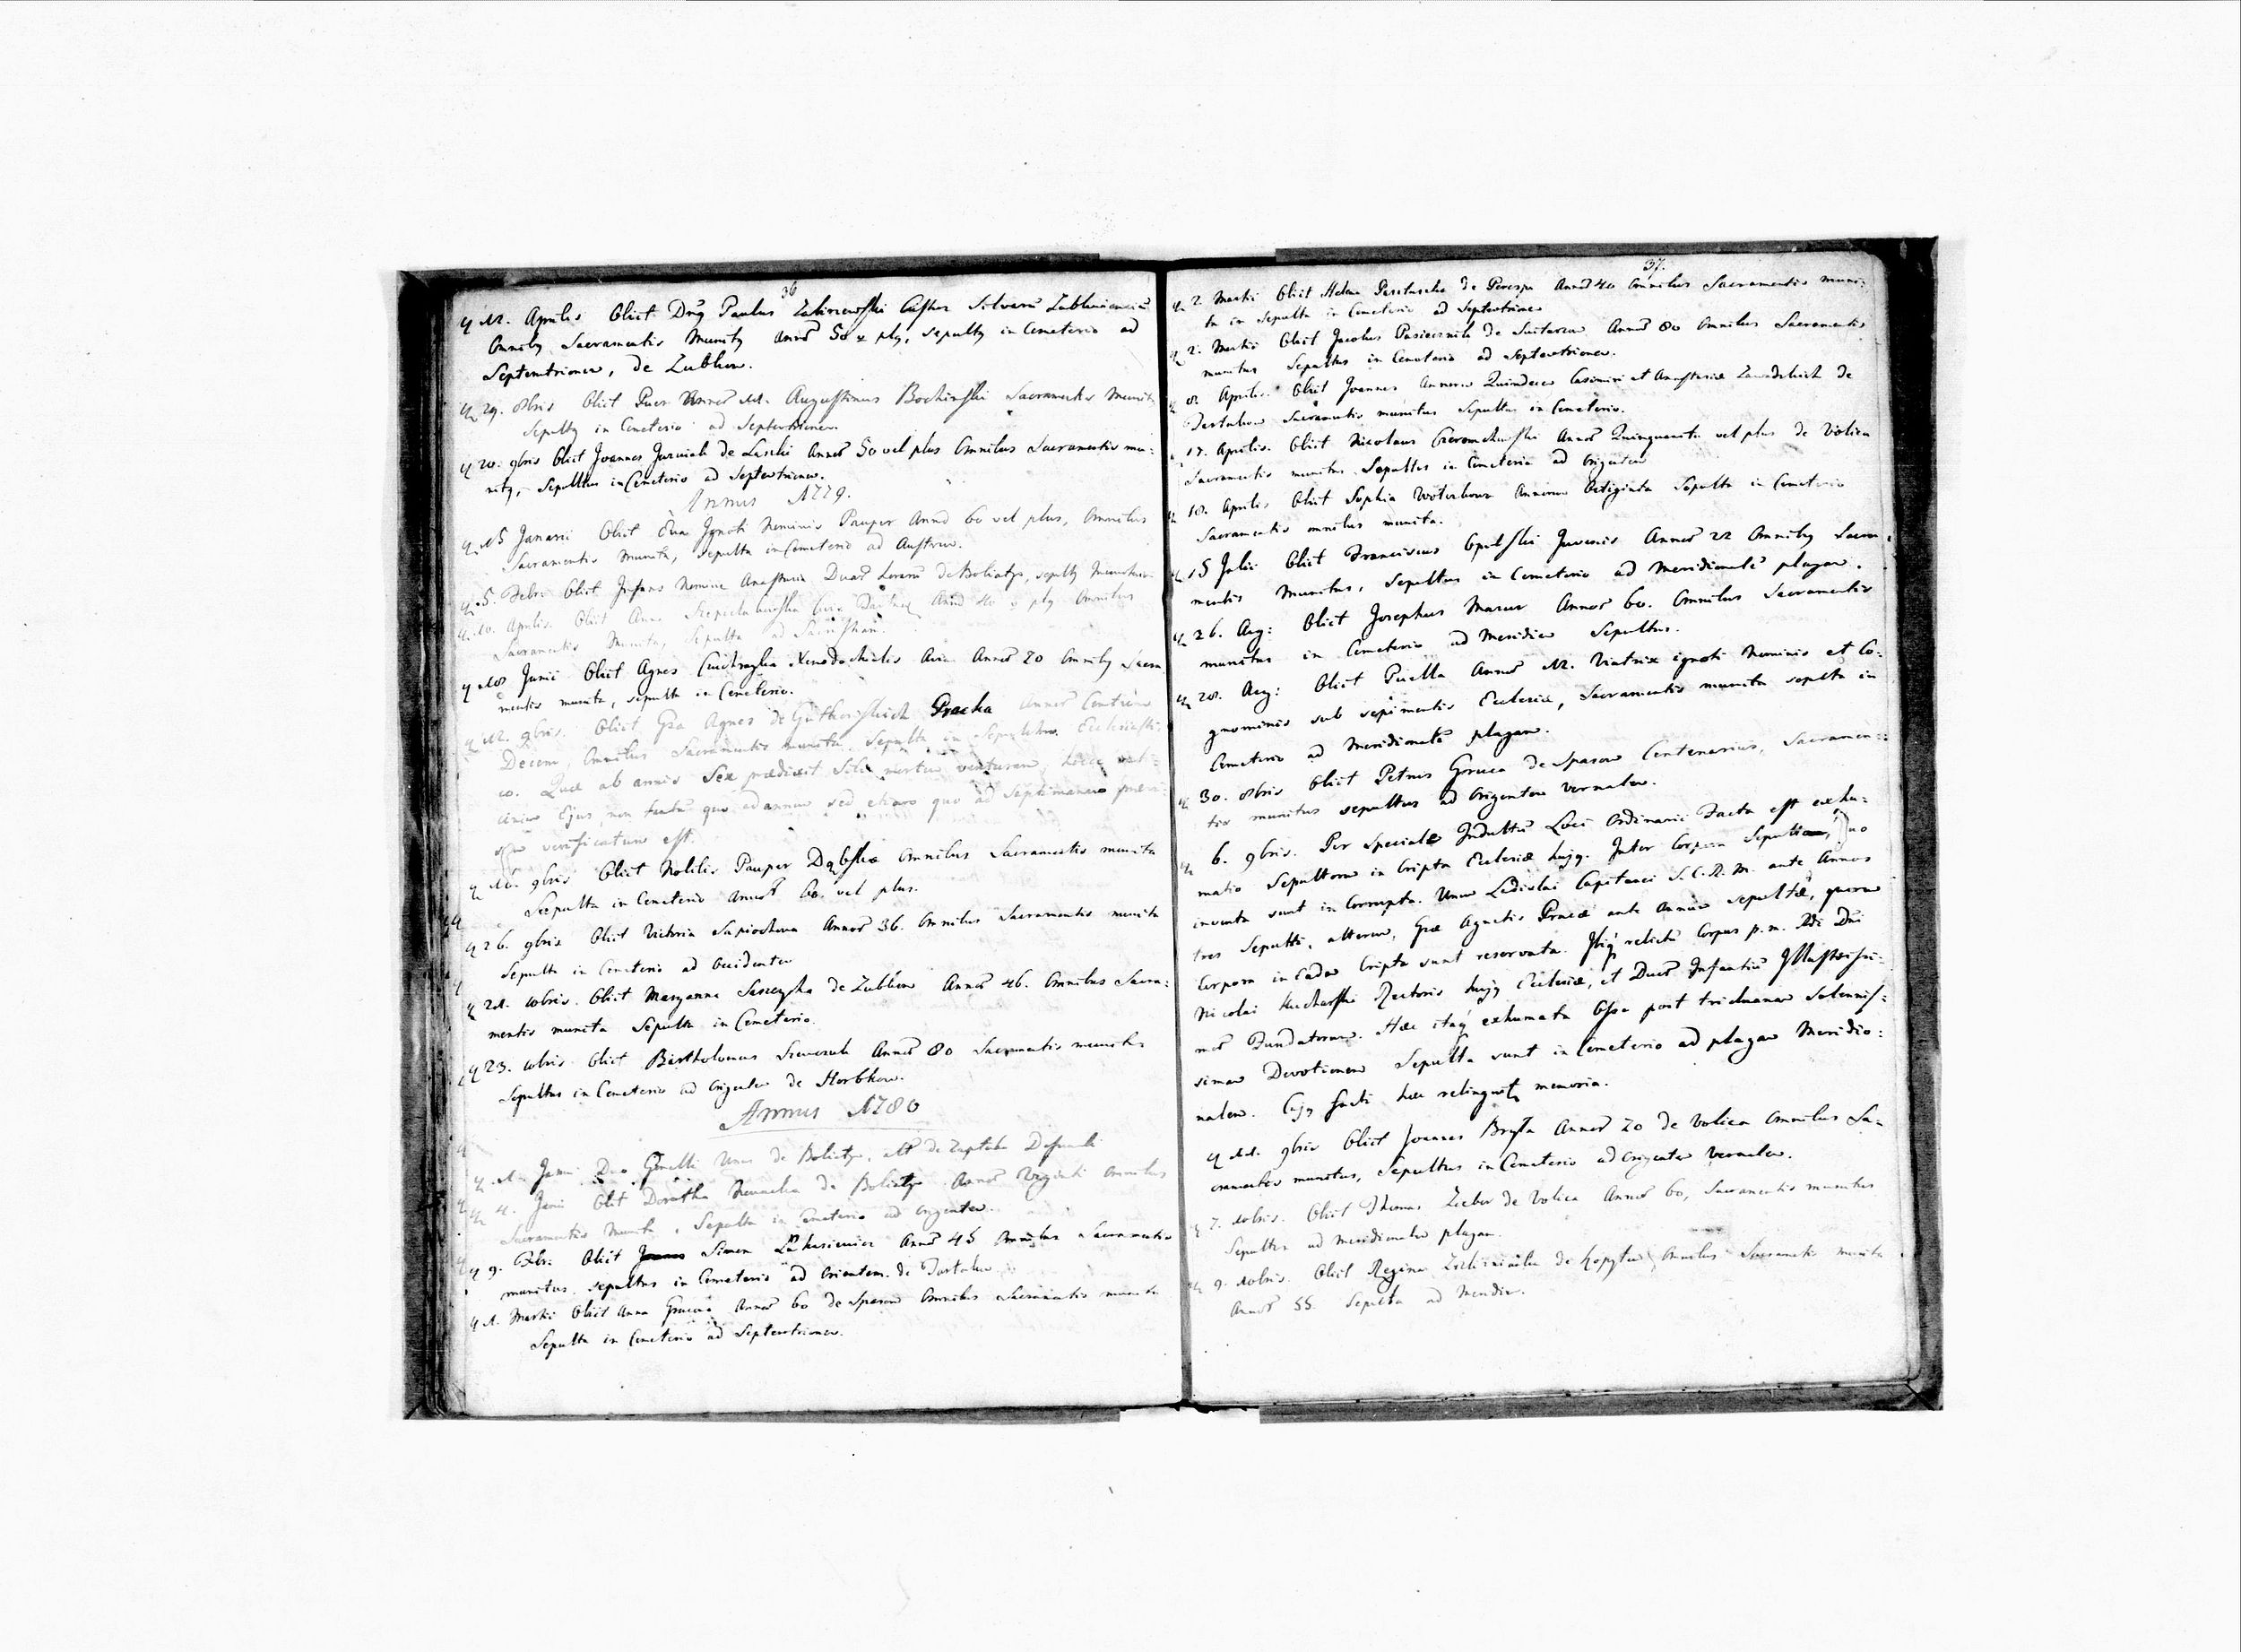 36
12. Aprilis Obiit Dnq Paulus Zakrzewski Custos Silvarū Zubliniensiū
Omnibq Sacramentis Munitq Annor̄ 50 & plq, sepultq in Cemeterio ad
Septemtrionem, de Zubkow.
29. 8bris Obiit Puer Annor̄ 11. Augustinus Bochinski Sacramentis Munitq
Sepultq in Cemeterio ad Septemtrionem.
20. 9bris Obiit Joannes Juzwiak de Laszki Annor̄ 50 vel plus Omnibus Sacramentis mu:
nitq, Sepultus in Cemeterio ad Septemtrionem.
Annus 1779.
15 Januarii Obiit Eva Ignoti Nominis Pauper Annor̄ 60 vel plus, Omnibus
Sacramentis Munita, sepulta in Cemeterio ad Austrum.
5. Febr: Obiit Infans Nomine Anastasia Duar̄ horarū de Boliatyn, sepulta
10. Aprilis Obiit Anna Annor̄ 40 & plq Omnibus
Sacramentis Munita, Sepulta ad
Junii Obiit Agnes Xenodochialis Annor̄ 70 Omnibq Sacra
mentis munita, sepulta in Cemeterio.
12. 9bris. Obiit Gsa Agnes de Gracka Annor̄ Centum
Decem, Omnibus Sacramentis munita, Sepulta in Sepulchro Ecclesiasti:
co. Quæ ab annis Sex prædixit Sibi mortem venturam,
Ejus non tantū quo ad annum sed etiam quo ad Septimanam
verificatum est.
16. 9bris Obiit Nobilis Pauper Dąbska Omnibus Sacramentis munita
Sepulta in Cemeterio Annor̄ 60 vel plus.
26. 9bris Obiit Victoria Sapiochowa Annor̄ 36. Omnibus Sacramentis munita
Sepulta in Cemeterio ad Occidentem
21. 10bris. Obiit Maryanna Saszczycha de Zubkow Annor̄ 46. Omnibus Sacra:
mentis munita Sepulta in Cemeterio.
23. 10bris Obiit Bartholomeus Szewczuk Annor̄ 80 Sacramentis munitus
Sepultus in Cemeterio ad Origentem de Horbkow.
Annus 1780
1. Januarii Duo Gemelli Unus de Boliatyn, alter de Defuncti
4. Obiit Dorotha de Boliatyn Annor̄ Viginti Omnibus
Sacramentis Munita, Sepulta in Cemeterio ad Origentem.
9. Febr: Obiit Simon Łukasiewicz Annor̄ 45 Omnibus Sacramentis
munitus, sepultus in Cemeterio ad Orientem. de Tartakow
1. Martii Obiit Anna Gruców Annor̄ 60 de Spasow Omnibus Sacramentis munita
Sepulta in Cemeterio ad Septemtrionem.
37.
2. Martii Obiit Helena de Perespa Annor̄ 40 Omnibus Sacramentis muni:
ta in Sepulta in Cemeterio ad Septemtrionem
2. Martii Obiit Jacobus Pasiecznik de Annor̄ 80 Omnibus Sacramentis
munitus Sepultus in Cemeterio ad Septemtrionem.
8. Aprilis. Obiit Joannes Annorum Quindecim Casimiri et Anastasiæ Zawadzkich de
Tartakow Sacramentis munitus Sepultus in Cemeterio.
17. Aprilis. Obiit Nicolaus Gieromchowski Annor̄ Quinquaginta vel plus de Volica
Sacramentis munitus Sepultus in Cemeterio ad Origentem
18. Aprilis Obiit Sophia Annorum Octiginta Sepulta in Cemeterio
Sacramentis omnibus munita.
15 Julii Obiit Franciscus Opulski Juvenis Annor̄ 22 Omnibq Sacra
mentis Munitus, Sepultus in Cemeterio ad Meridionalē plagam.
26. Aug: Obiit Josephus Mazur Annor̄ 60. Omnibus Sacramentis
munitus in Cemeterio ad Meridiem Sepultus.
28. Aug: Obiit Puella Annor̄ 12. Viatrix ignoti Nominis et Co:
gnominis sub sepimentis Ecclesiæ, Sacramentis munita sepulta in
Cemeterio ad Meridionalē plagam.
30. 8bris Obiit Petrus Gruca de Spasow Centenarius, Sacramen:
tis munitus sepultus ad Origentem vernalem.
6. 9bris. Per Speciale Indultū Loci Ordinarii Facta est exhu:
matio Sepultorum in Cripta Ecclesiæ hujq. Inter Corpora Sepulta, Duo
inventa sunt in Corrupta. Unum Ladislai Capitanei S.C.R.M. ante Annos
tres Sepulti, alterum, Gsæ Agnetis Grackæ ante Annum sepultæ, quorum
Corpora in eadem Cripta sunt reservata. Ibiq relictū Corpus p.m. Adi Dni
Nicolai Kucharski Rectoris hujq Ecclesiæ, et Duor̄ Infantiū Illustrissi:
mor̄ Fundatorum. Hæc itaq exhumata Ossa post triduanam Solennis:
simam Devotionem Sepulta sunt in Cemeterio ad plagam Meridio:
nalem. Cujq facti hæc relinquitur memoria.
11. 9bris Obiit Joannes Bryła Annor̄ 70 de Volica Omnibus Sa:
cramentis munitus, Sepultus in Cemeterio ad Origentem vernalem.
7. 10bris. Obiit Thomas de Volica Annor̄ 60, Sacramentis munitus
Sepultus ad meridionalem plagam.
9. 10bris. Obiit Regina de Kopytow Omnibus Sacramentis munita
Annor̄ 55. Sepulta ad Meridiem.